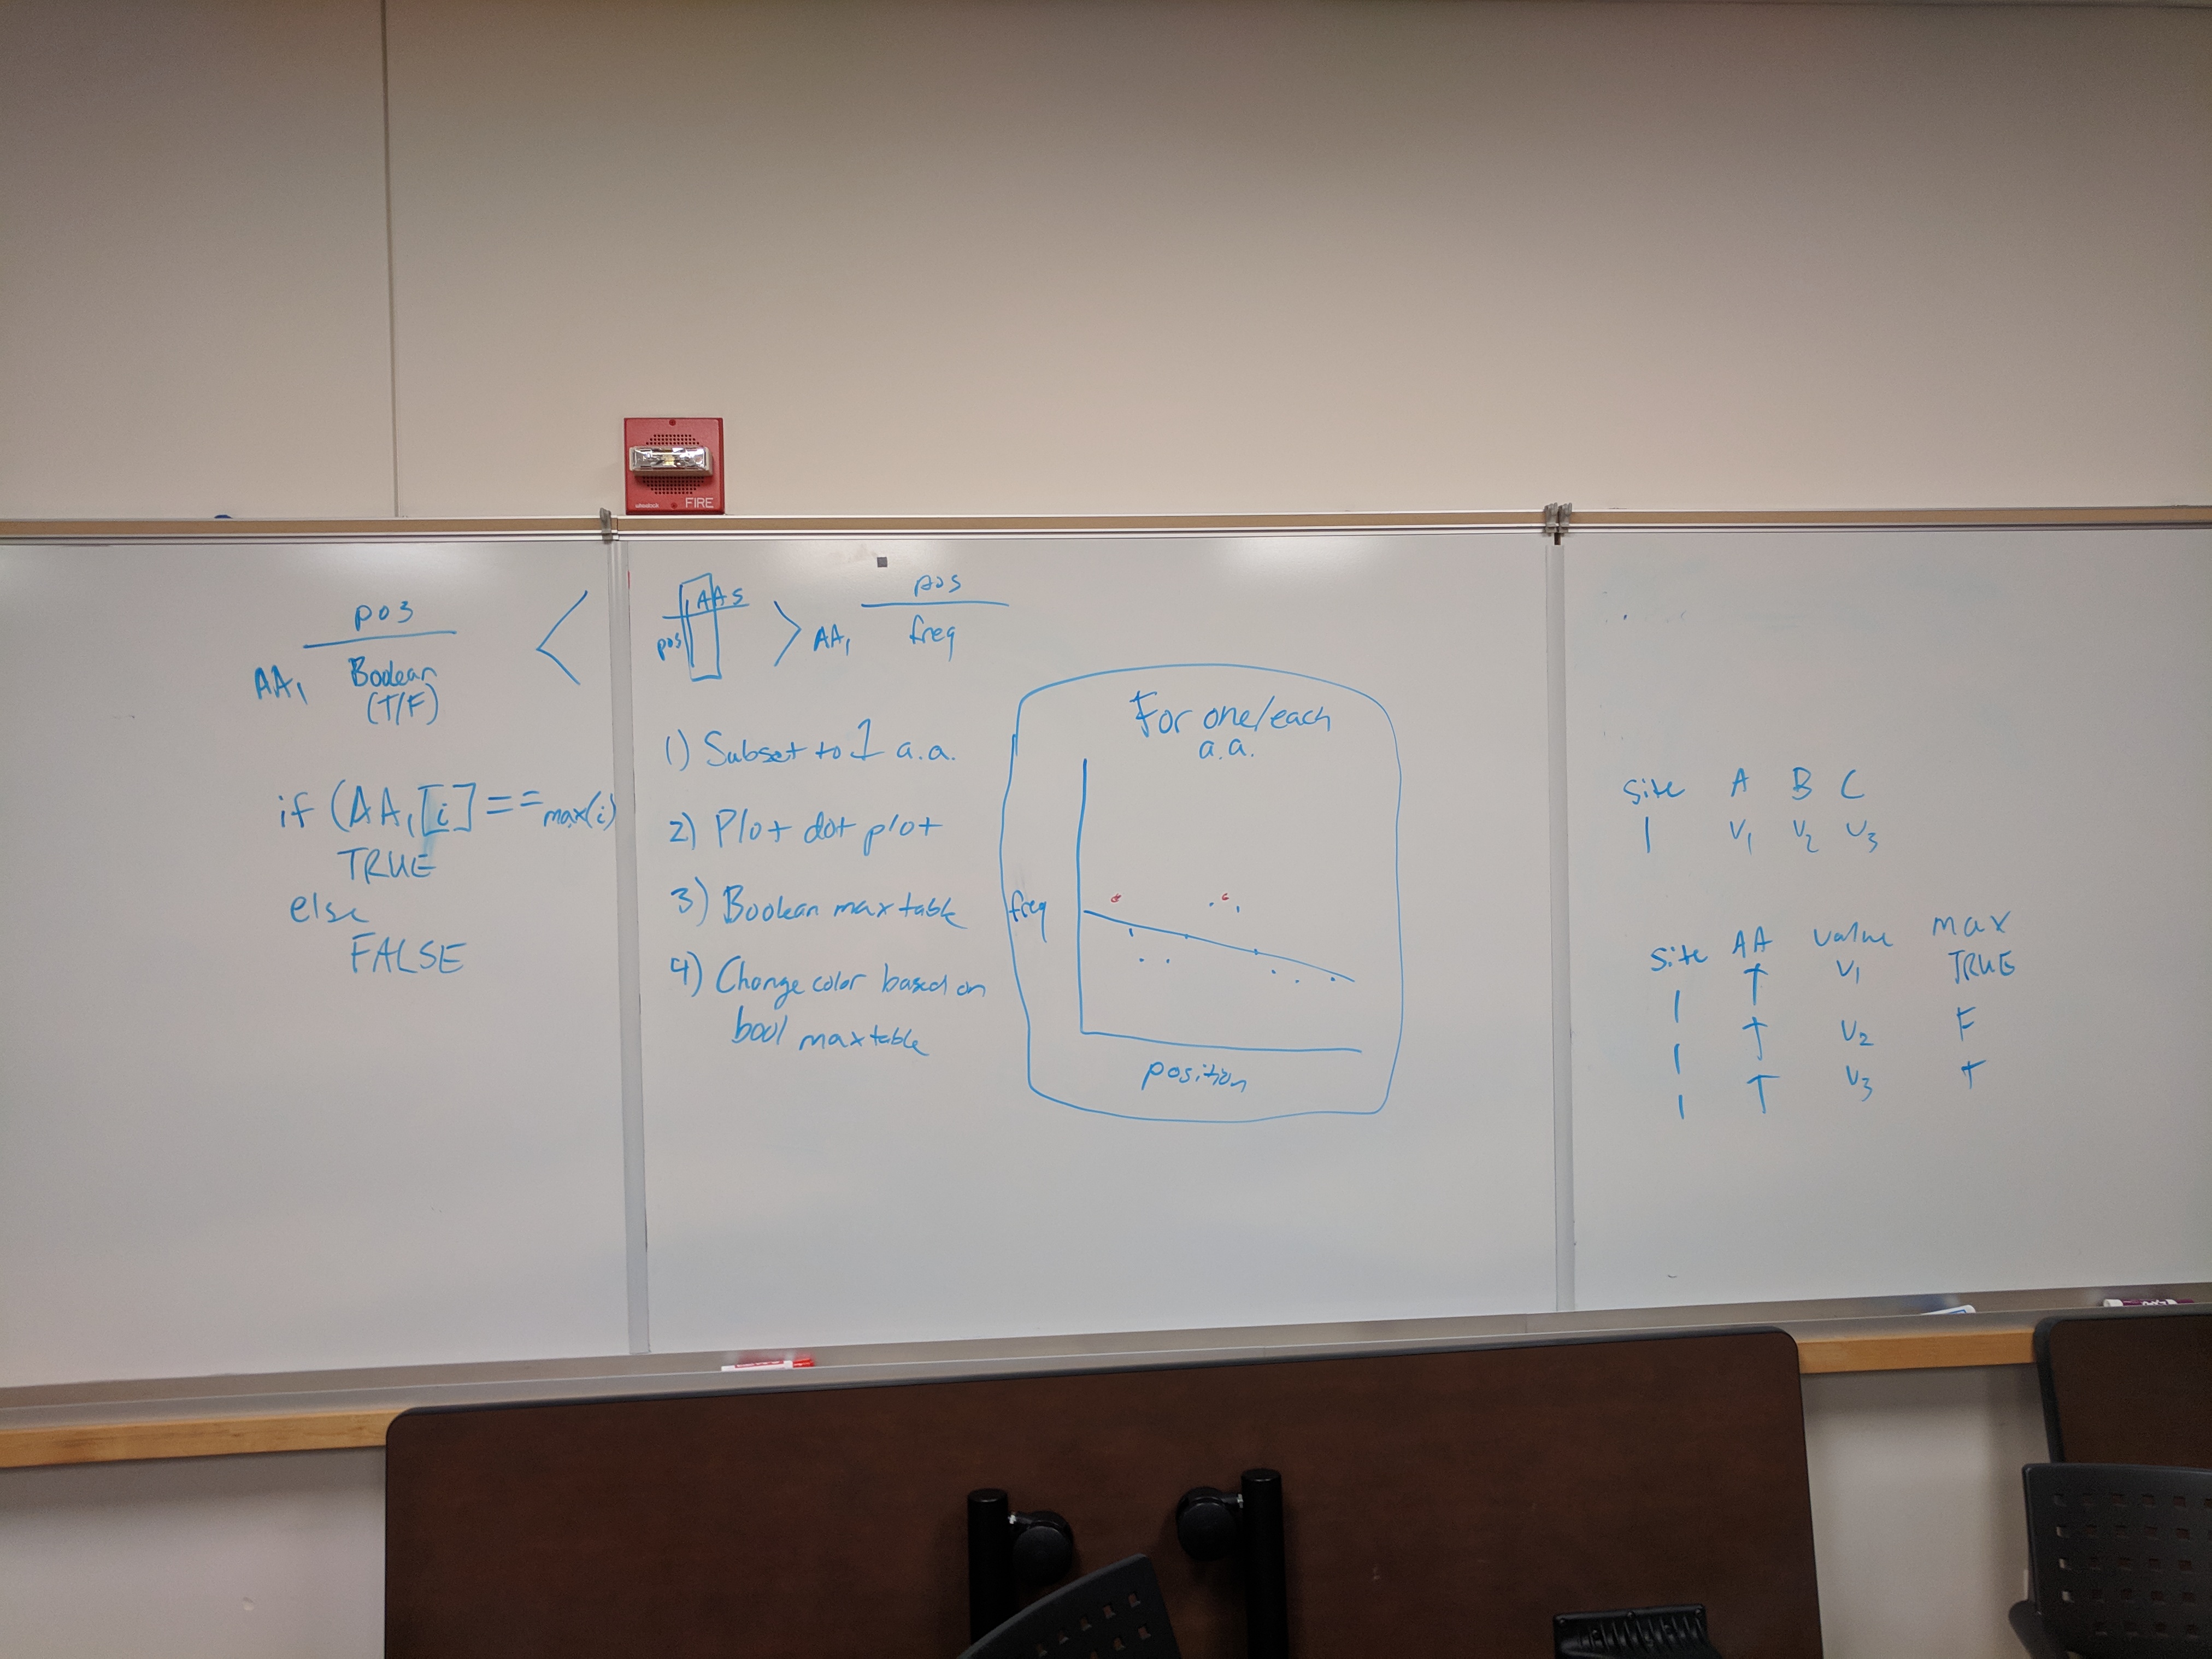 FIRE
pos
AA1 Boolean
(T/F)
if (AA1[i] == max(i)
TRUE
else
FALSE
AAs
pos
pos
AA1 freq
1) Subset to 1 a.a.
2) Plot dot plot
3) Boolean max table
4) Change color based on
bool max table
For one/each
a.a.
freq
position
site A B C
1 V1 V2 V3
site AA value max
1 T V1 TRUE
1 T V2 F
1 T V3 T